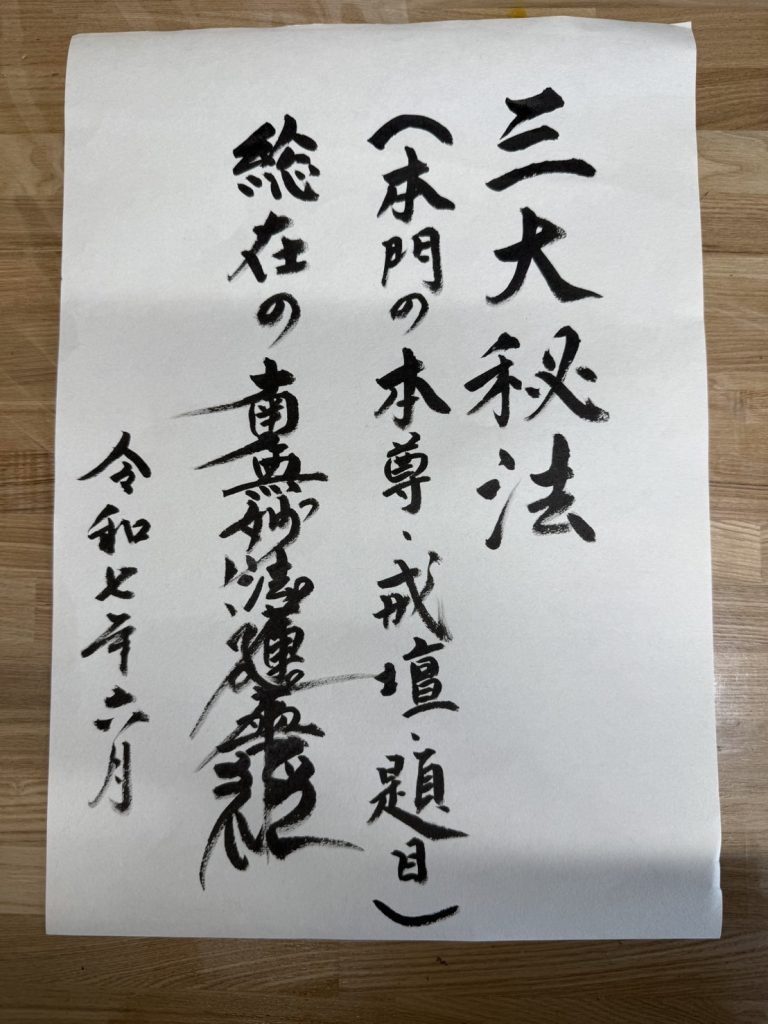 三大秘法
（本門の本尊、戒壇、題目）
総在の南無妙法蓮華経
令和七年六月